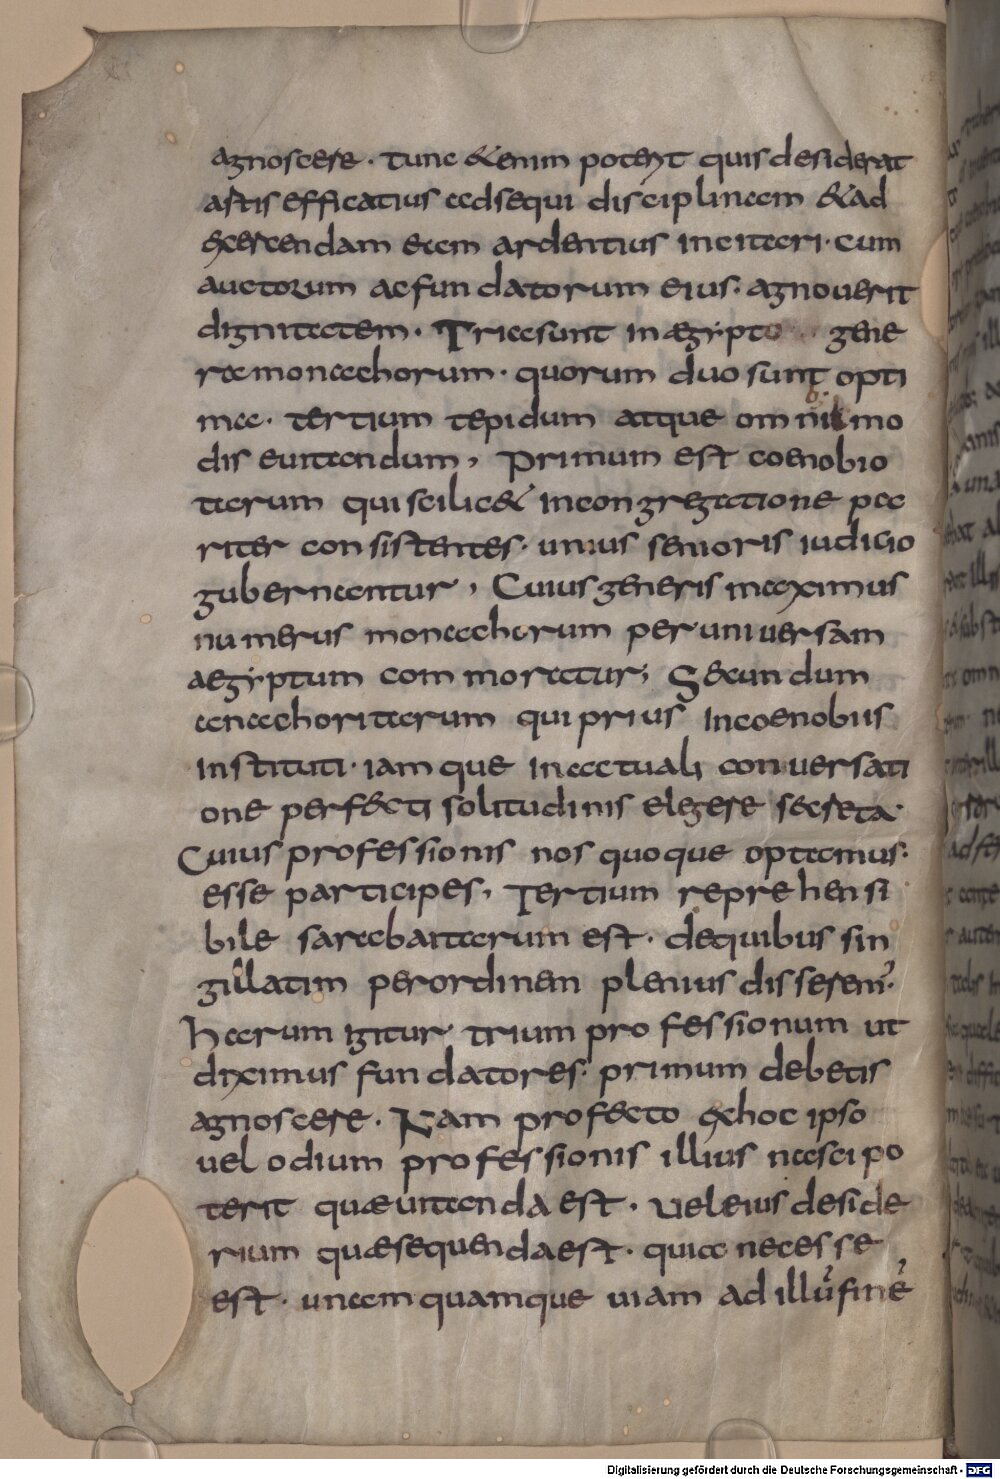 agnoscere · tunc &enim poterit quis desiderat
astis efficatius adsequi disciplinam &ad
exercendam eam ardentius incitari · cum
auctorum acfundatorum eius · agnouerit
dignitatem · Tria sunt in ægypto gene
ra monachorum · quorum duo sunt opti
ma · tertium tepidum atque omnimo
dis euitandum, Primum est coenobio
tarum qui scilic& incongregatione pa
riter consistentes · unius senioris iudicio
gubernantur, Cuius generis maximus
numerus monachorum per uniuersam
aegiptum commoratur; S&cundum
anachoritarum qui prius incoenobiis
instituti · iamque inactuali conuersati
one perf&cti solitudinis elegere secreta ·
Cuius professionis nos quoque optamus ·
esse participes, Tertium reprehensi
bile sarabaitarum est · dequibus sin
gillatim perordinem plenius disserem' ·
harum igitur trium professionum ut
diximus fundatores · primum debetis
agnoscere · Nam prof&cto exhoc ipso
uel odium professionis illius nasci po
terit quæ uitanda est · uel eius deside
rium quæ sequenda est · quia necesse
est · unamquamque uiam ad illū finē
Digitalisierung gefördert durch die Deutsche Forschungsgemeinschaft - DFG